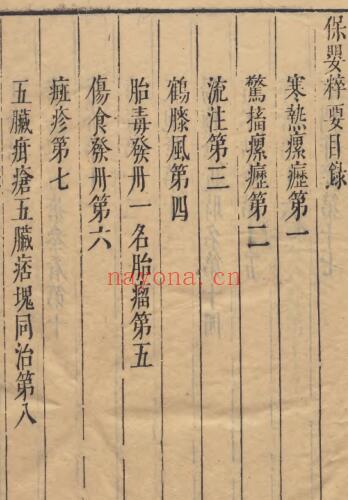 保嬰粹要目錄
寒熱瘰癧第一
驚搐瘰癧第二
流注第三
鶴膝風第四
胎毒發丹一名胎瘤第五
傷食發丹第六
痘疹第七
五臟疳瘡五臟痞塊同治第八
nayona.cn